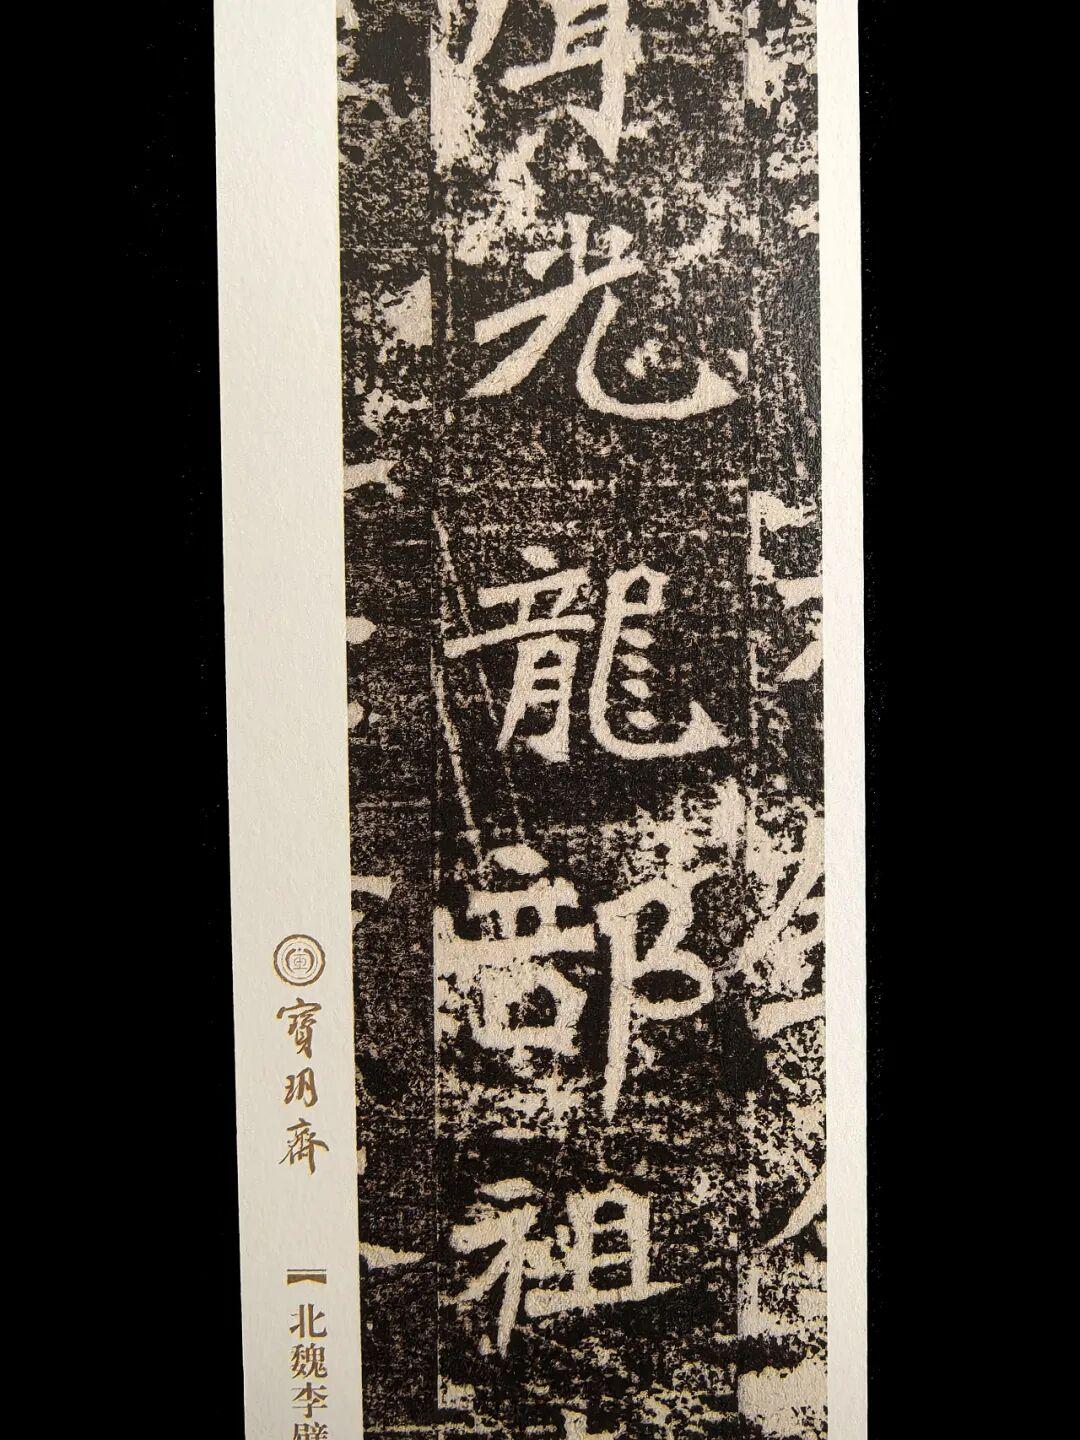 光龍部祖
寶玥齋
北魏李璧